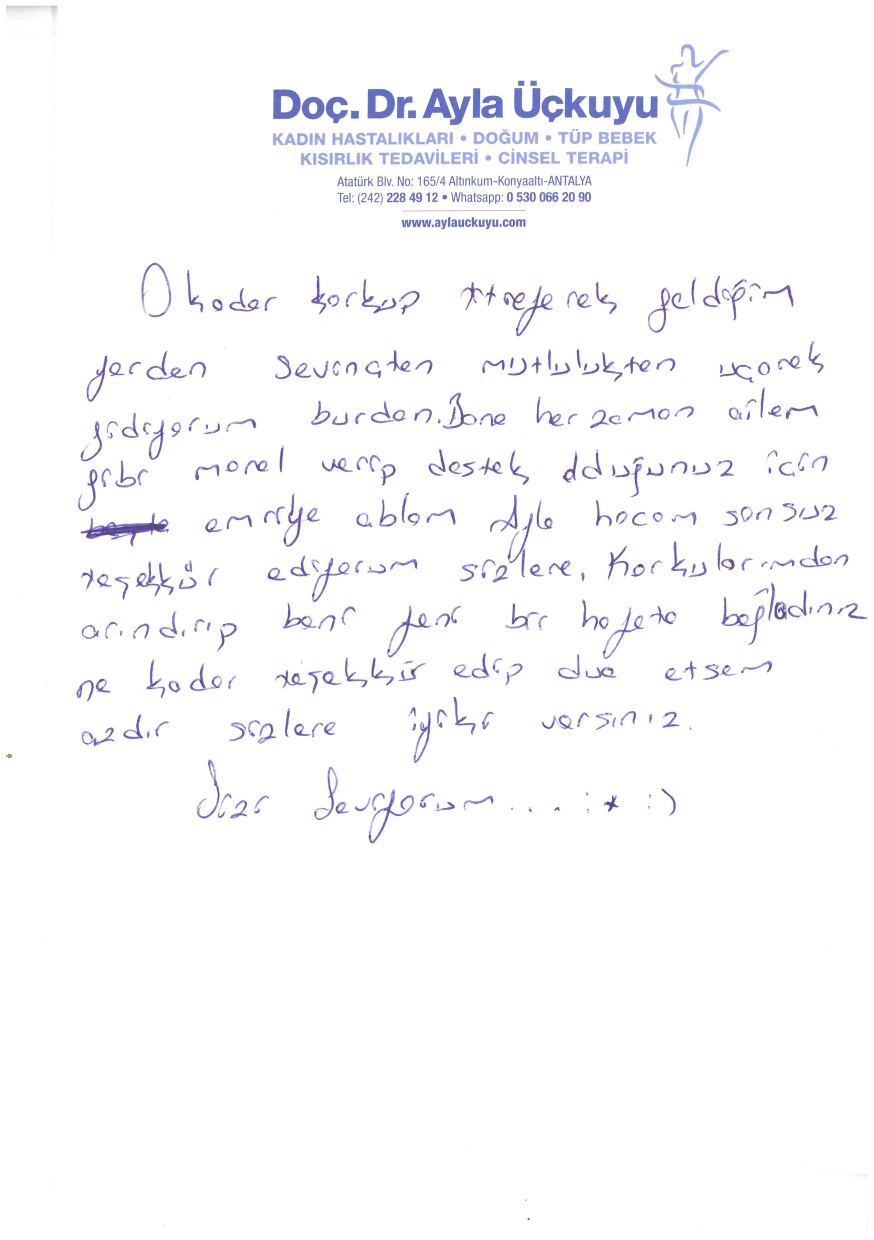 Doç. Dr. Ayla Üçkuyu
KADIN HASTALIKLARI • DOĞUM • TÜP BEBEK
KISIRLIK TEDAVİLERİ • CİNSEL TERAPİ
Atatürk Blv. No: 165/4 Altınkum-Konyaaltı-ANTALYA
Tel: (242) 228 49 12 • Whatsapp: 0 530 066 20 90
www.aylauckuyu.com
O kadar korkup titreyerek geldiğim
yerden sevinçten mutluluktan uçarak
gidiyorum burdan. Bana her zaman ailem
gibi moral verip destek olduğunuz için
emriye ablam Ayla hocam sonsuz
teşekkür ediyorum sizlere. Korkularımdan
arındırıp beni yeni bir hayata bağladınız
ne kadar teşekkür edip dua etsem
azdır sizlere iyiki varsınız.
Sizi Seviyorum... :* :)